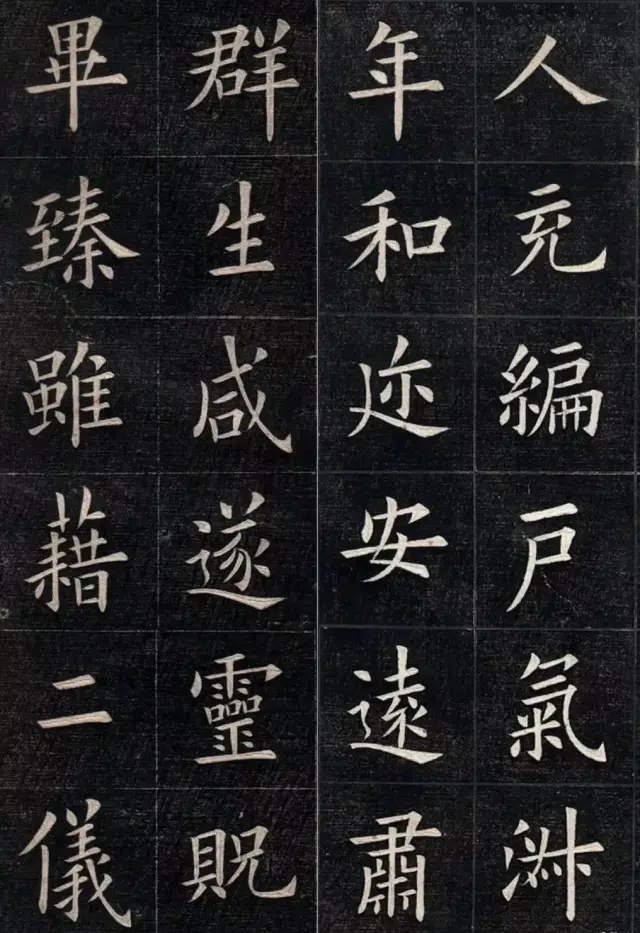 人充編戸氣淑
年和迩安遠肅
群生咸遂靈貺
畢臻雖藉二儀